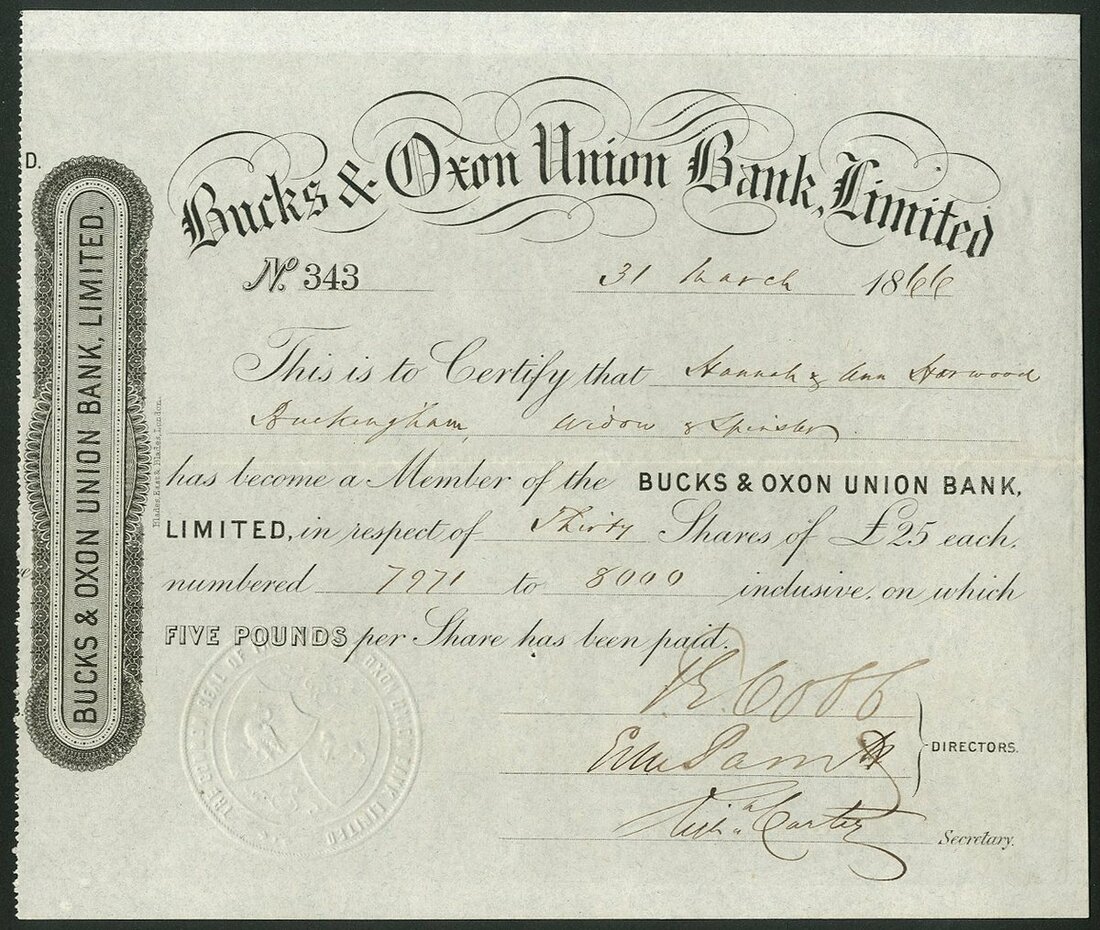 D.
BUCKS & OXON UNION BANK, LIMITED.
Bucks & Oxon Union Bank, Limited
No. 343 31 March 1866
This is to Certify that Hannah & Ann Harwood
Buckingham, Widow & Spinster
has become a Member of the BUCKS & OXON UNION BANK,
LIMITED, in respect of Thirty Shares of £25 each,
numbered 7971 to 8000 inclusive, on which
FIVE POUNDS per Share has been paid.
Cobb
DIRECTORS.
Carter
Secretary.
Blades, East & Blades, London.
SEAL OF OXON UNION BANK LIMITED